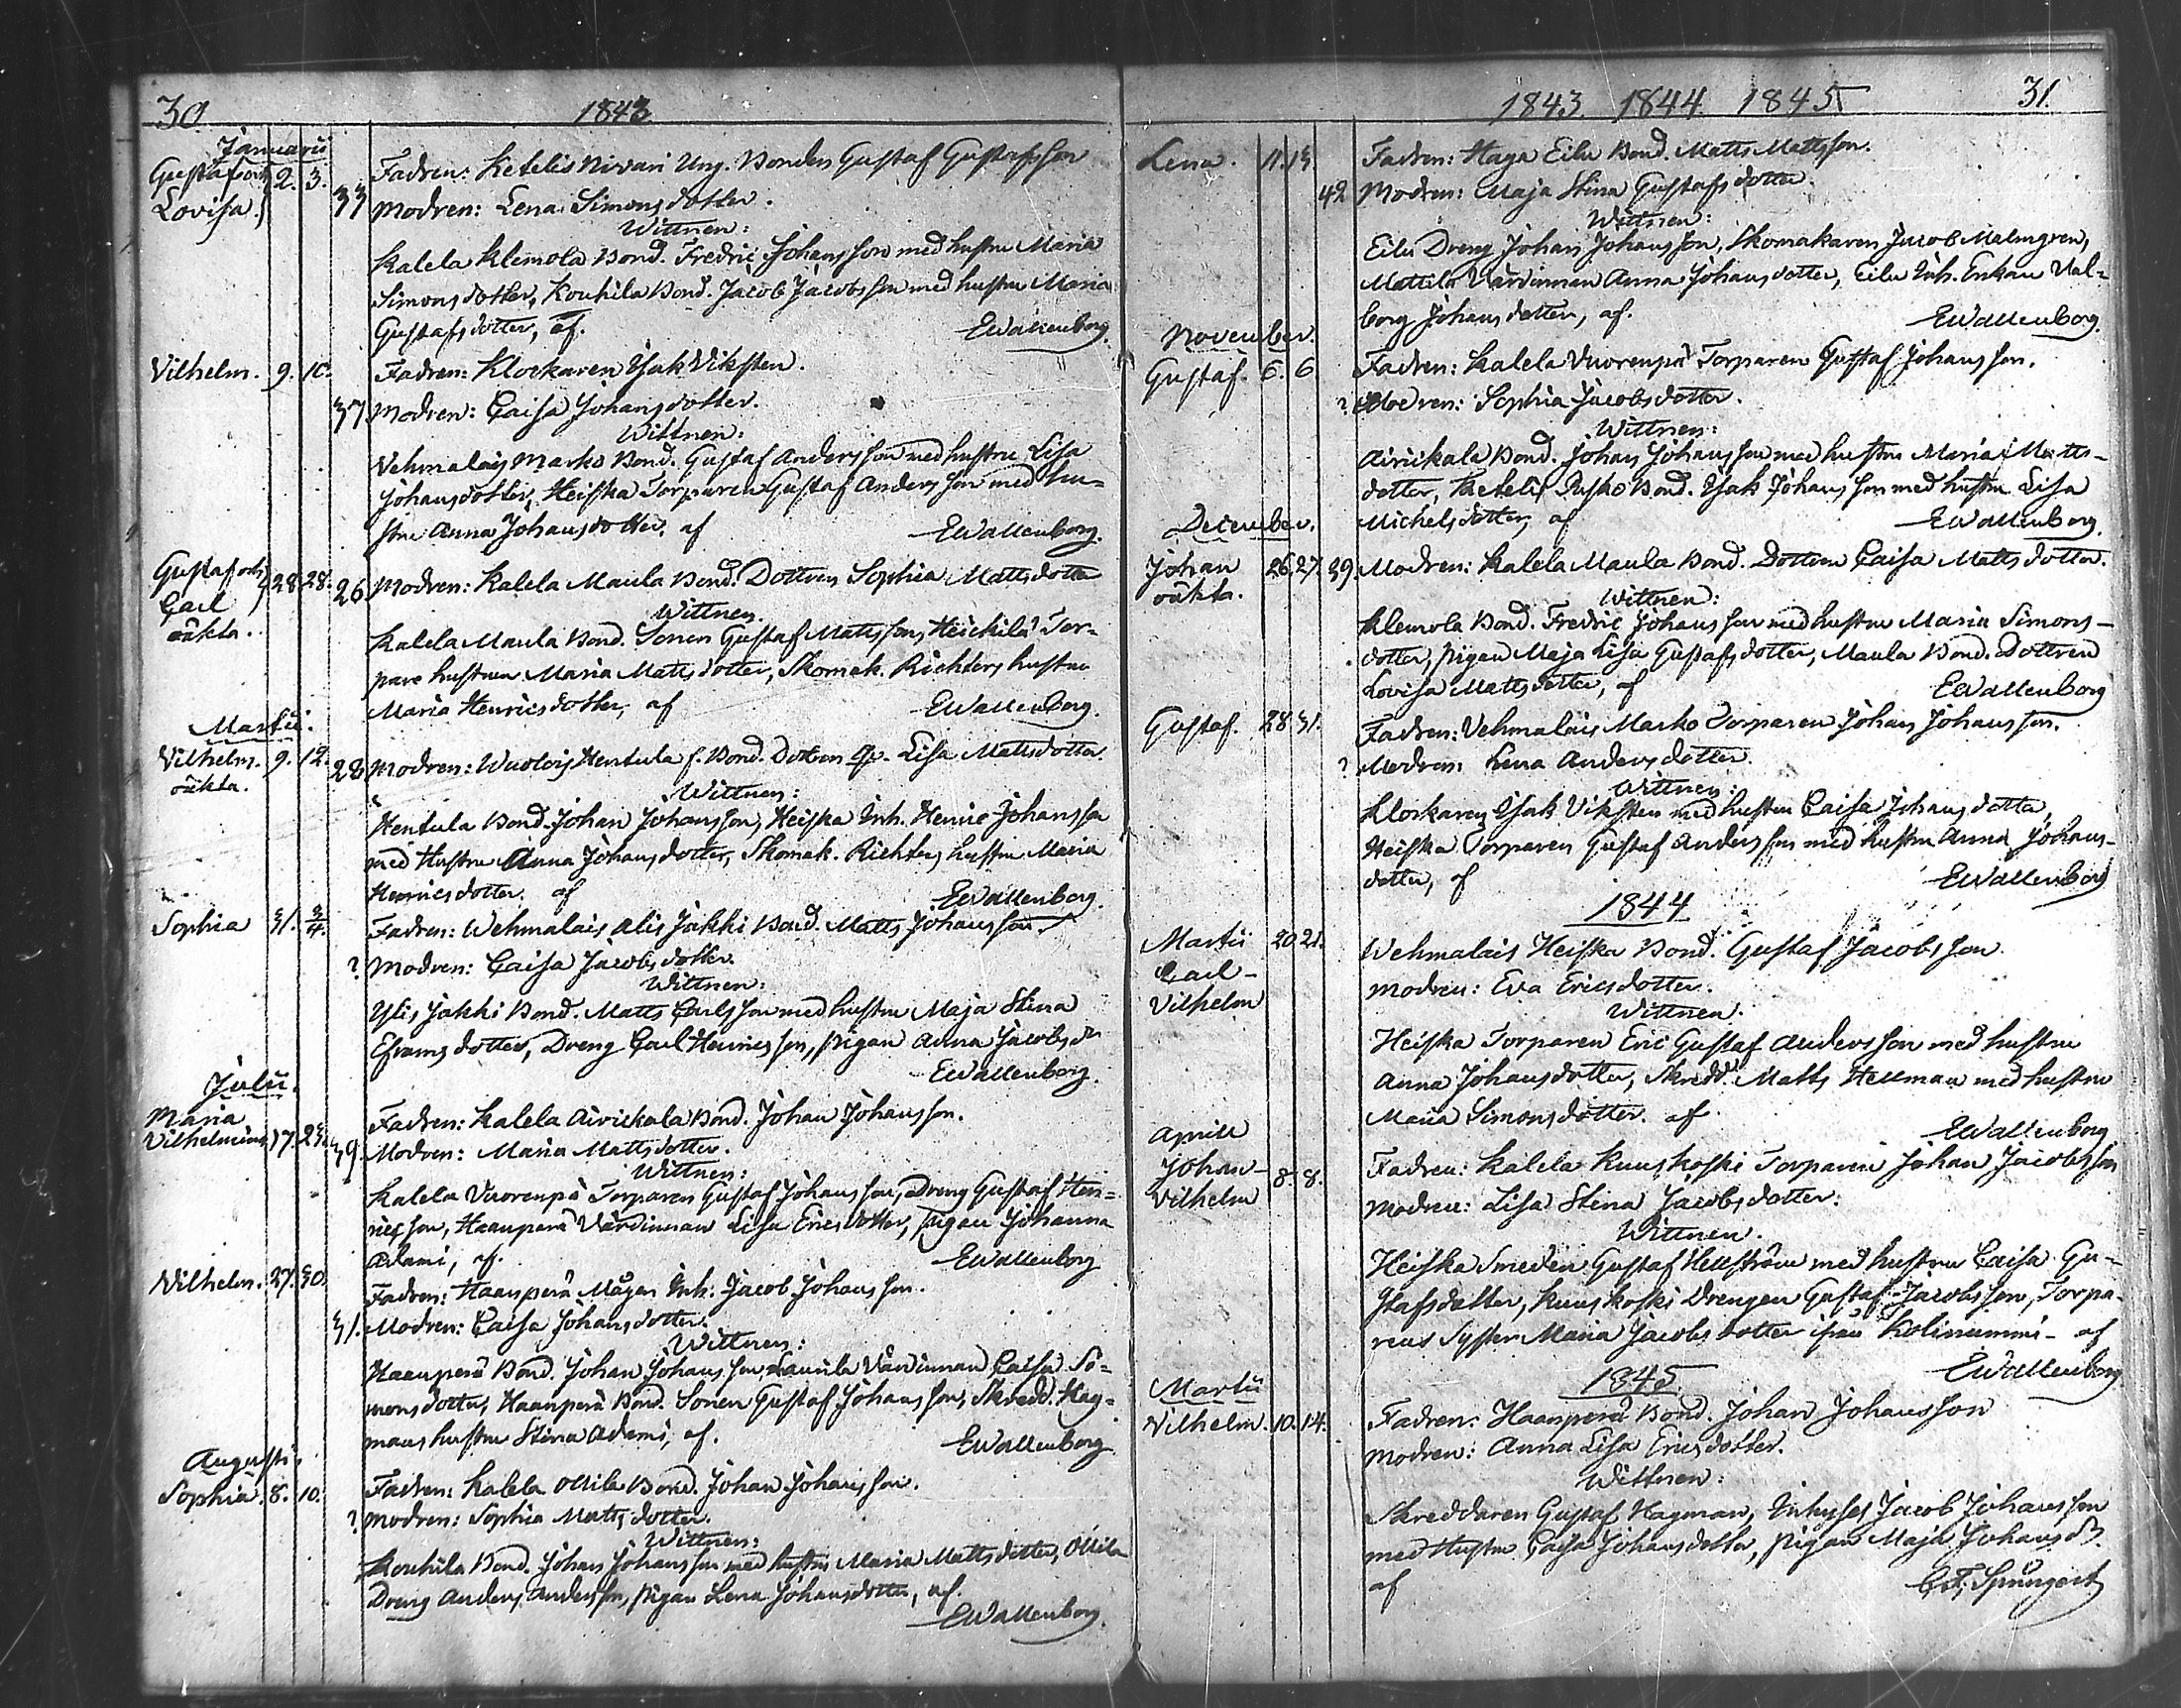 30
1843
Januarii
Gustaf och 2. 3. Fadren: Ketelis Nivari Ung. Bonden Gustaf Gustafsson
Lovisa. 33 Modren: Lena Simonsdotter.
Wittnen:
Kalela Klemola Bond. Fredric Johansson med hustru Maria
Simonsdotter, Kouhila Bond. Jacob Jacobsson med hustru Maria
Gustafsdotter, af. EWallenborg.
Vilhelm. 9. 10. Fadren: Klockaren Isak Viksten.
37 Modren: Caisa Johansdotter.
Wittnen:
Vehmalais Marko Bond. Gustaf Andersson med hustru Lisa
Johansdotter, Heiska Torparen Gustaf Andersson med hu-
stru Anna Johansdotter, af EWallenborg.
Gustaf och
Carl 28. 28. 26 Modren: Kalela Maula Bond. Dottren Sophia Mattsdotter
oäkta. Wittnen.
Kalela Maula Bond. Sonen Gustaf Mattsson, Heickilä Tor-
pare hustrun Maria Mattsdotter, Skomak. Richters hustru
Maria Henricsdotter, af EWallenborg.
Martii.
Vilhelm. 9. 12. 28 Modren: Wuolois Hentula f. Bond. Dottren Lisa Mattsdotter.
oäkta. Wittnen:
Hentula Bond. Johan Johansson, Heiska Inh. Henric Johansson
med Hustru Anna Johansdotter, Skomak. Richters hustru Maria
Henricsdotter. af EWallenborg.
Sophia 31. 3/4. Fadren: Wehmalais Alis Jakki Bond. Matts Johansson
? Modren: Caisa Jacobsdotter.
Wittnen:
Ylis Jakki Bond. Matts Carlsson med hustru Maja Stina
Eframsdotter, Dreng Carl Henricsson, pigan Anna Jacobsdr
EWallenborg.
Julii.
Maria
Vilhelmina 17. 23. Fadren: Kalela Airickala Bond. Johan Johansson.
39. Modren: Maria Mattsdotter.
Wittnen:
Kalela Vuorenpä Torparen Gustaf Johansson, Dreng Gustaf Hen-
ricsson, Haanperä Värdinnan Lisa Ericsdotter, pigan Johanna
Adami, af. EWallenborg
Vilhelm. 27. 30. Fadren: Haanperä Mågen Inh. Jacob Johansson.
31. Modren: Caisa Johansdotter.
Wittnen:
Haanperä Bond. Johan Johansson, Laurila Värdinnan Caisa Si-
monsdotter, Haanperä Bond. Sonen Gustaf Johansson, Skredd. Hag-
mans hustru Stina Adami, af. EWallenborg
Augusti.
Sophia. 8. 10. Fadren: Kalela Ollila Bond. Johan Johansson.
? Modren: Sophia Mattsdotter.
Wittnen:
Kouhila Bond. Johan Johansson med hustru Maria Mattsdotter, Ollila
Dreng Anders Andersson, pigan Lena Johansdotter, af.
EWallenborg.
1843. 1844. 1845
31.
Lena. 11. 13. Fadren: Haga Eilu Bond. Matts Mattsson.
42 Modren: Maja Stina Gustafsdotter.
Wittnen:
Eilu Dreng Johan Johansson, Skomakaren Jacob Malmgren,
Mattila Värdinnan Anna Johansdotter, Eilu Inh. Enkan Val-
borg Johansdotter, af. EWallenborg.
November.
Gustaf. 6. 6 Fadren: Kalela Vuorenpä Torparen Gustaf Johansson.
? Modren: Sophia Jacobsdotter.
Wittnen:
Airickala Bond. Johan Johansson med hustru Maria Matts-
dotter, Ketelis Pusko Bond. Isak Johansson med hustru Lisa
Michelsdotter, af EWallenborg.
December.
Johan 26. 27. 39. Modren: Kalela Maula Bond. Dottren Caisa Mattsdotter.
oäkta. Wittnen:
Klemola Bond. Fredric Johansson med hustru Maria Simons-
dotter, pigan Maja Lisa Gustafsdotter, Maula Bond. Dottren
Lovisa Mattsdotter, af EWallenborg
Gustaf. 28. 31. Fadren: Vehmalais Marko Torparen Johan Johansson.
? Modren: Lena Andersdotter.
Wittnen:
Klockaren Isak Viksten med hustru Caisa Johansdotter,
Heiska Torparen Gustaf Andersson med hustru Anna Johans-
dotter, af EWallenborg
1844
Martii 20 21. Wehmalais Heiska Bond. Gustaf Jacobsson
Carl- Modren: Eva Ericsdotter.
Vilhelm Wittnen.
Heiska Torparen Eric Gustaf Andersson med hustru
Anna Johansdotter, Skredd. Matts Hellman med hustru
Maria Simonsdotter. af
EWallenborg
Aprill
Johan- 8. 8. Fadren: Kalela Kuuskoski Torparen Johan Jacobsson
Vilhelm Modren: Lisa Stina Jacobsdotter.
Wittnen.
Heiska Smeden Gustaf Hellström med hustru Caisa Gu-
stafsdotter, Kuuskoski Drengen Gustaf Jacobsson, Torpa-
rens Syster Maria Jacobsdotter ifrån Kolinummi - af
EWallenborg
1845
Martii
Vilhelm. 10. 14. Fadren: Haanperä Bond. Johan Johansson
Modren: Anna Lisa Ericsdotter.
Wittnen:
Skreddaren Gustaf Hagman, Inhyses Jacob Johansson
med Hustru Caisa Johansdotter, pigan Maja Johansdr.
af C.F. Spungert